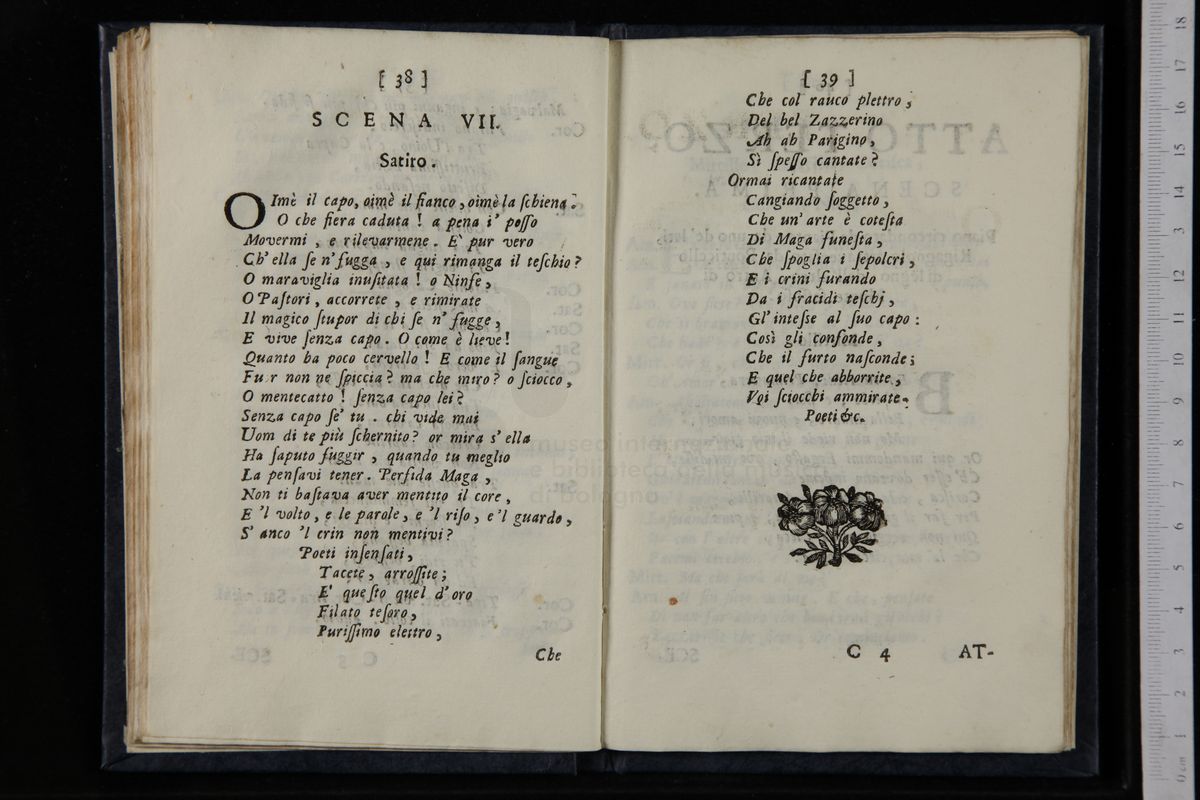 [ 38 ]
SCENA VII.
Satiro.
OImè il capo, oimè il fianco, oimè la ſchiena.
O che fiera caduta! a pena i' poſſo
Movermi, e rilevarmene. E' pur vero
Ch' ella ſe n' fugga, e qui rimanga il teſchio?
O maraviglia inuſitata! o Ninfe,
O Paſtori, accorrete, e rimirate
Il magico ſtupor di chi ſe n' fugge,
E vive ſenza capo. O come è lieve!
Quanto ha poco cervello! E come il ſangue
Fuor non ne ſpiccia? ma che miro? o ſciocco,
O mentecatto! ſenza capo lei?
Senza capo ſe' tu. chi vide mai
Uom di te più ſchernito? or mira s' ella
Ha ſaputo fuggir, quando tu meglio
La penſavi tener. Perfida Maga,
Non ti baſtava aver mentito il core,
E 'l volto, e le parole, e 'l riſo, e 'l guardo,
S' anco 'l crin non mentivi?
Poeti inſenſati,
Tacete, arroſſite;
E' queſto quel d' oro
Filato teſoro,
Puriſſimo elettro,
Che
[ 39 ]
Che col rauco plettro,
Del bel Zazzerino
Ah ah Parigino,
Sì ſpeſſo cantate?
Ormai ricantate
Cangiando ſoggetto,
Che un' arte è coteſta
Di Maga funeſta,
Che ſpoglia i ſepolcri,
E i crini furando
Da i fracidi teſchj,
Gl' inteſse al ſuo capo:
Così gli confonde,
Che il furto naſconde;
E quel che abborrite,
Voi ſciocchi ammirate.
Poeti &c.
C 4
AT-
museo internazionale
e biblioteca della musica
di bologna